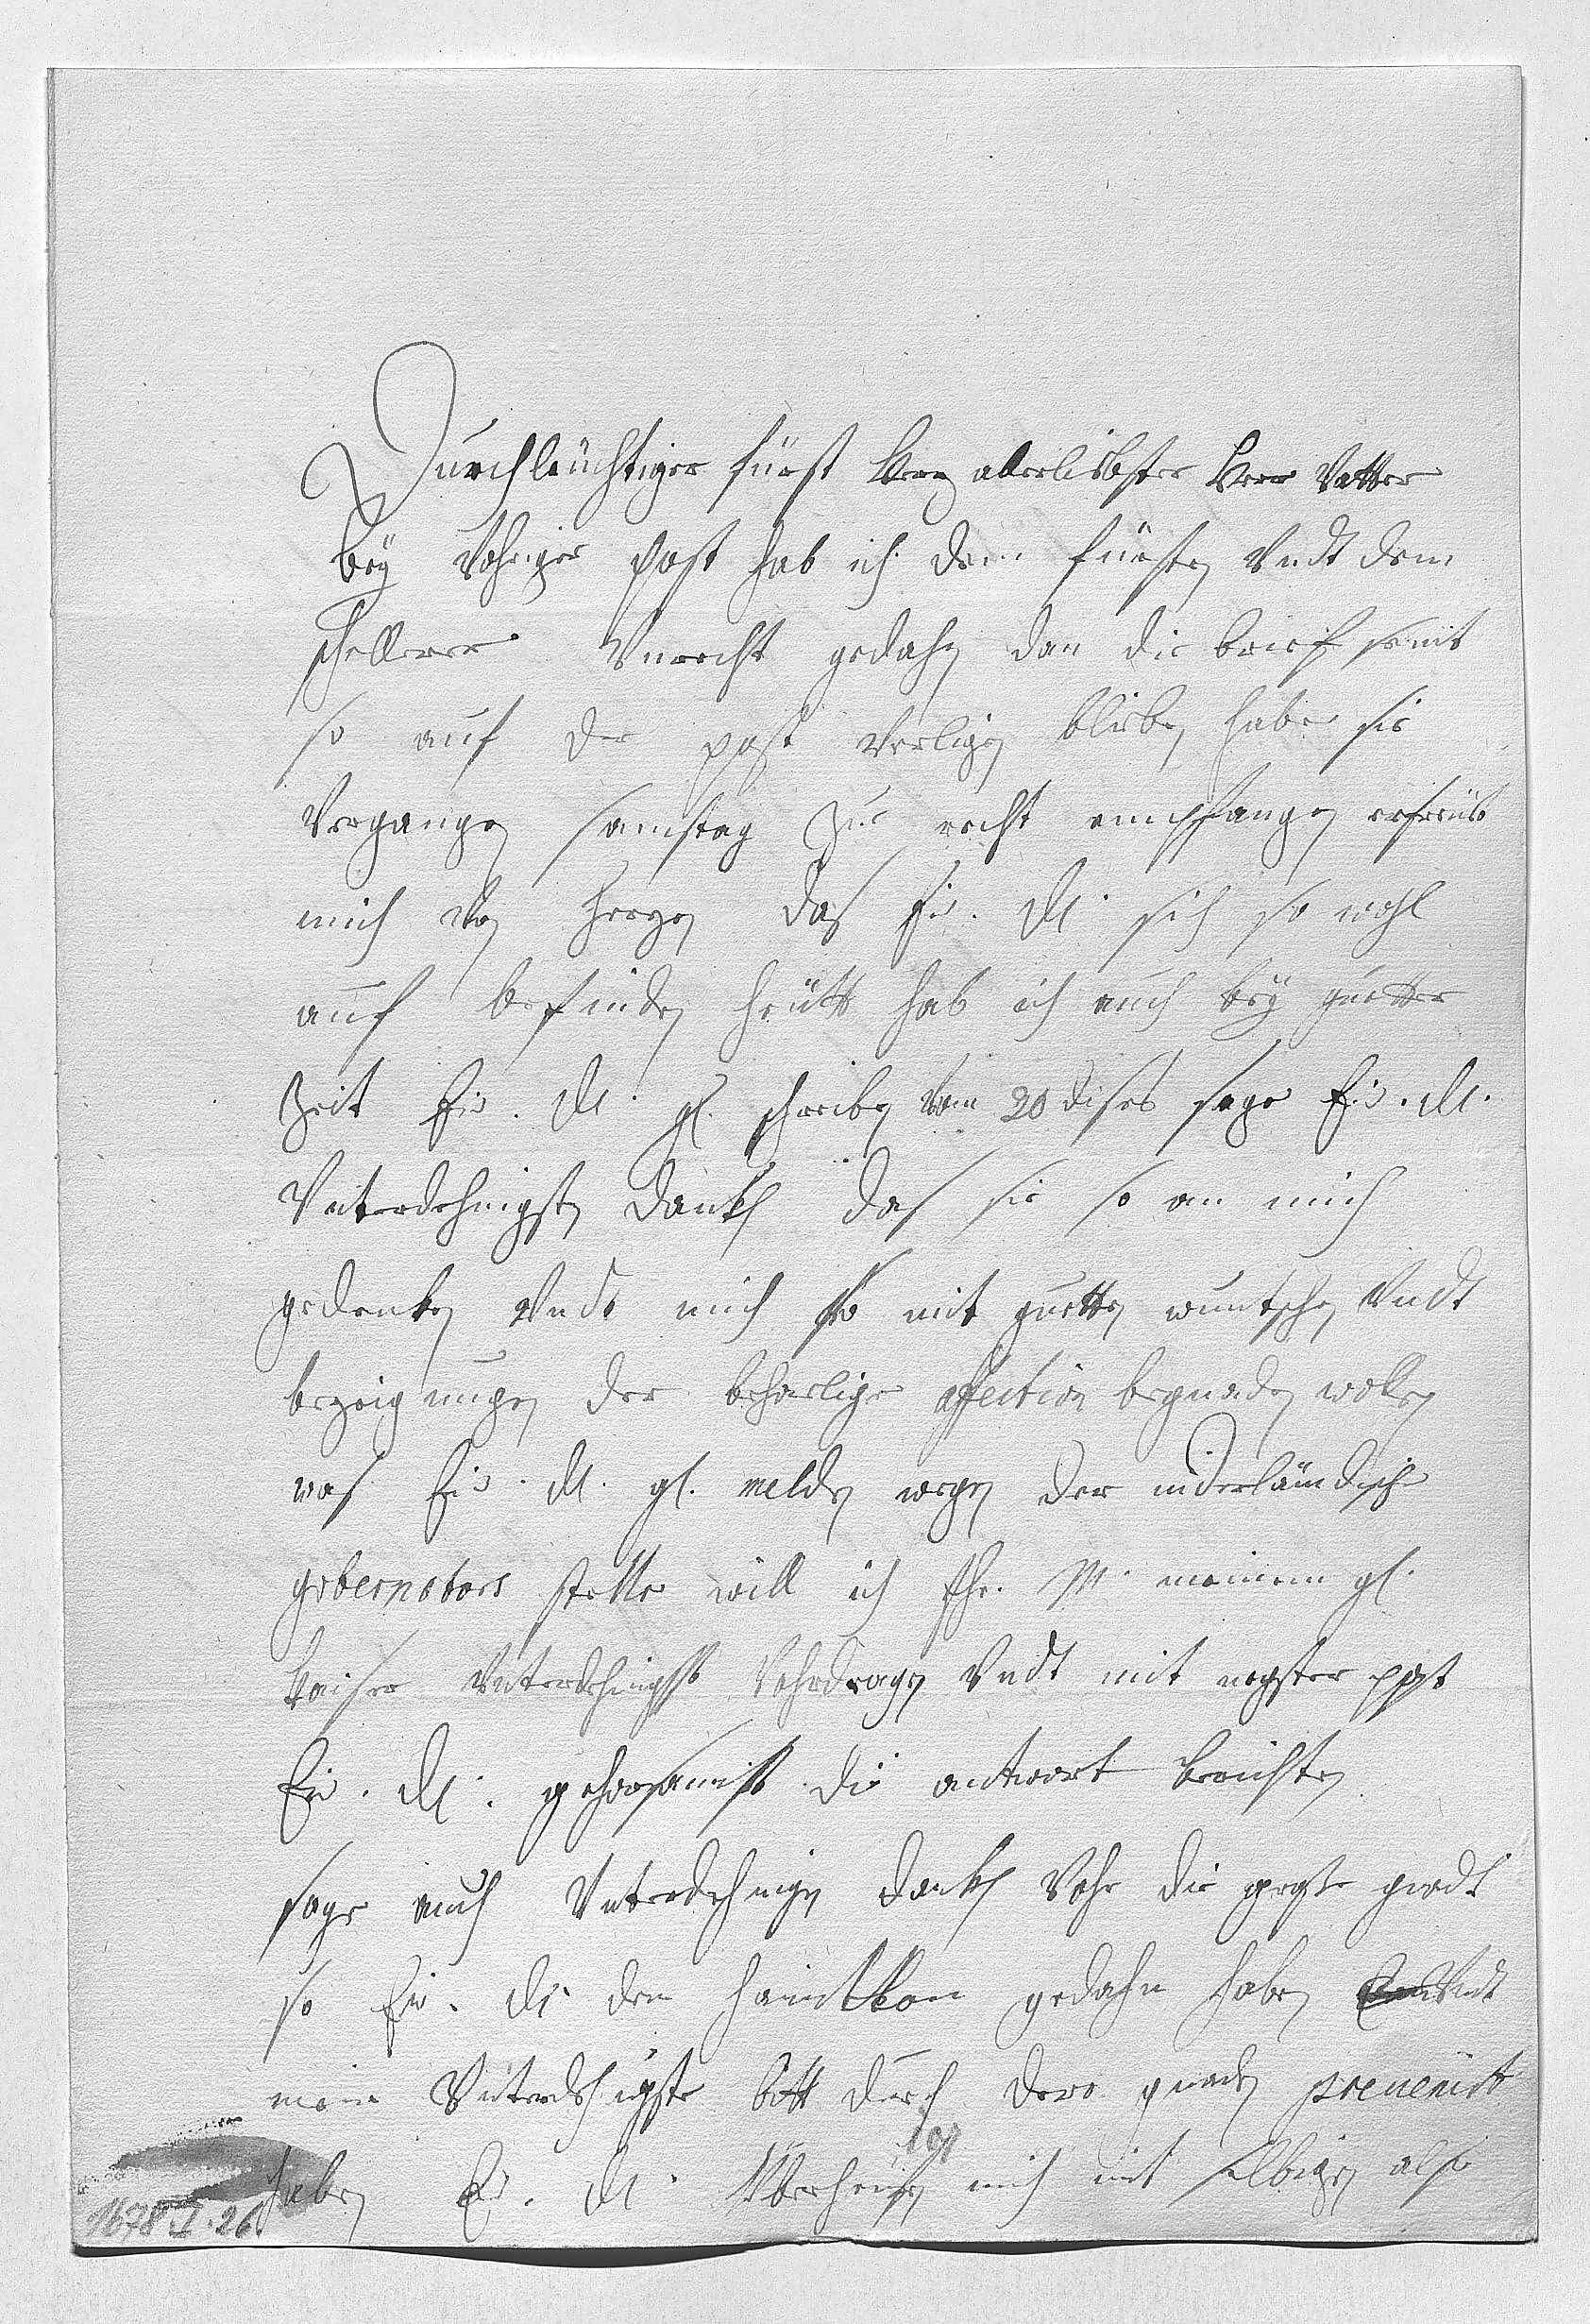 Durchleüchtiger fürst herr alerlibster herr Vatter
beÿ Vohriger post hab ich dem fürsten Vndt dem
schellerer Vnrecht gedahn dan die brief seint
so auf der post verligen bliben habe sie
Vergangen samstag zue recht empfangen erfreüdt
mich Von hertzen das Eu. Dl. sich so wohl
auf befinden heütt hab ich auch beÿ guetter
Zeit Eu. Dl. gl. schreiben Vom 20 dises sage Eu. Dl.
Vnterdehnigsten danckh das sie so an mich
gedencken Vndt mich so mit guetten wuntschen Vndt
bezeignungen der beharlige affection begnaden wollen
was Eu. Dl. gl. melden wegen der niderländische
gubernators stelle will ich Ihr. M. meinem gl.
kaiser Vnterdehnigst Vohrdragen Vndt mit negster post
Eu. Dl. gehorsamist die antwort berichten
sage auch Vnterdehnigen danckh Vohr die groste gnadt
so Eu. Dl. dem gedahn haben Vndt
meine Vnterdehnigste bitt durch dero gnaden prevenirt
haben Eu. Dl. mich mit selbigen also
191
1678.I.26.